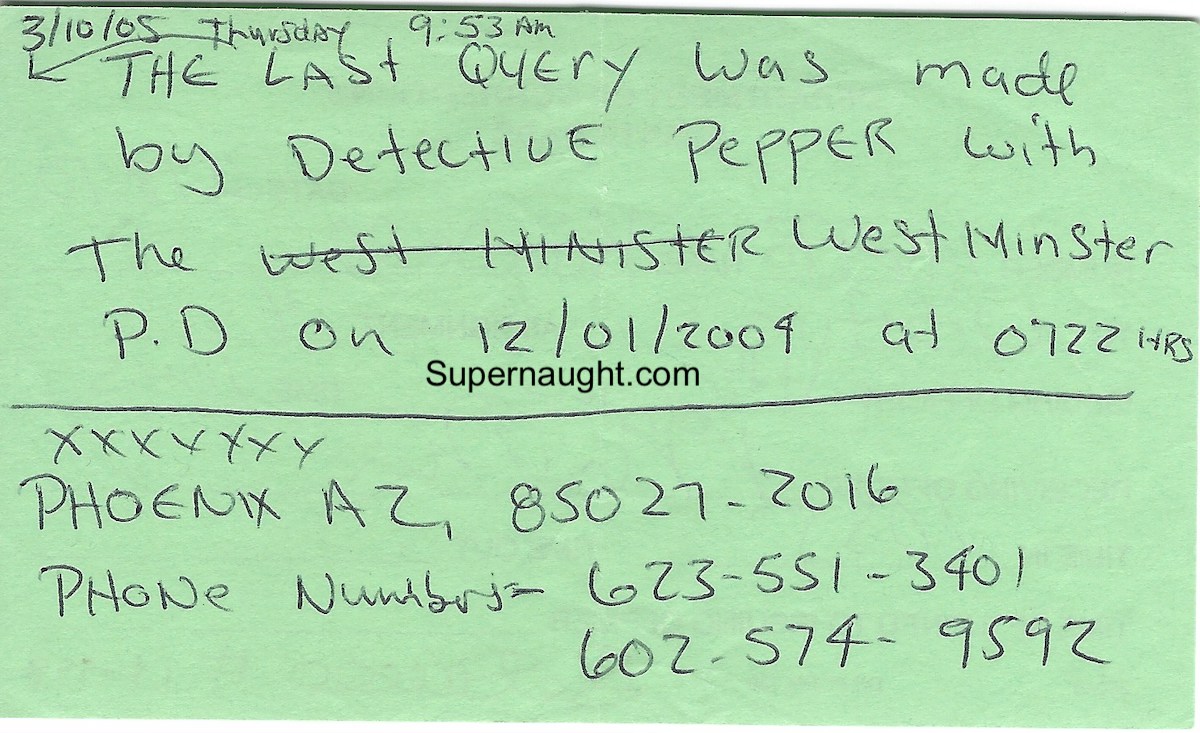 3/10/05 Thursday 9:53 AM
THE LASt QUEry was made
by DetectIVE PePPER with
The West MINISteR West Minster
P.D on 12/01/2004 at 0722 HRS
Supernaught.com
XXXXXXX
PHOENIX AZ, 85027-2016
PHONe Numbers= 623-551-3401
602-574-9592